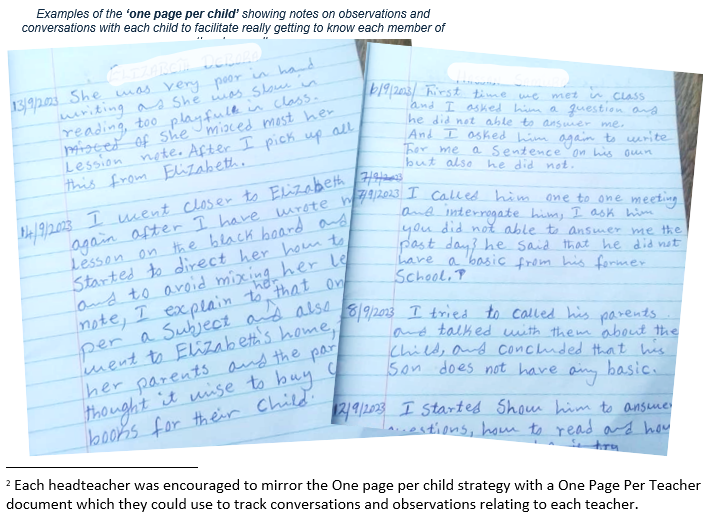 Examples of the 'one page per child' showing notes on observations and
conversations with each child to facilitate really getting to know each member of
13/9/2023 She was very poor in hand
writing and She was slow in
reading, too playfull in class.
of She mixed most her
Lession note. After I pick up all
this from Elizabeth.
14/9/2023 I went closer to Elizabeth
again after I have wrote
lesson on the black board and
Started to direct her how to
and to avoid mixing her
note, I explain to her that on
per a Subject and also
went to Elizabeth's home,
her parents and the
thought it wise to buy
books for their child.
6/9/2023 First time we met in class
and I asked him a question and
he did not able to answer me.
And I asked him again to write
For me a Sentence on his own
but also he did not.
7/9/2023
7/9/2023 I called him one to one meeting
and interrogate him, I ask him
you did not able to answer me the
past day? he said that he did not
have a basic from his former
School.
8/9/2023 I tried to called his parents
and talked with them about the
child, and concluded that his
Son does not have any basic.
12/9/2023 I Started Show him to answer
questions, how to read and how
try
2 Each headteacher was encouraged to mirror the One page per child strategy with a One Page Per Teacher
document which they could use to track conversations and observations relating to each teacher.